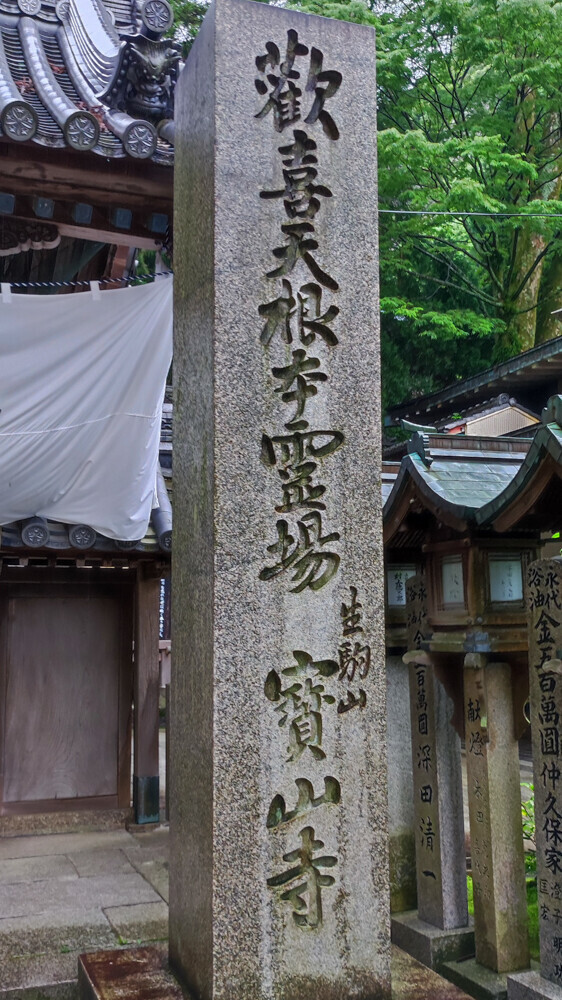 歡喜天根本霊場
生駒山
寳山寺
永代
浴油
百萬圓
深田清一
献燈
永代
浴油
金五百萬圓
仲久保家